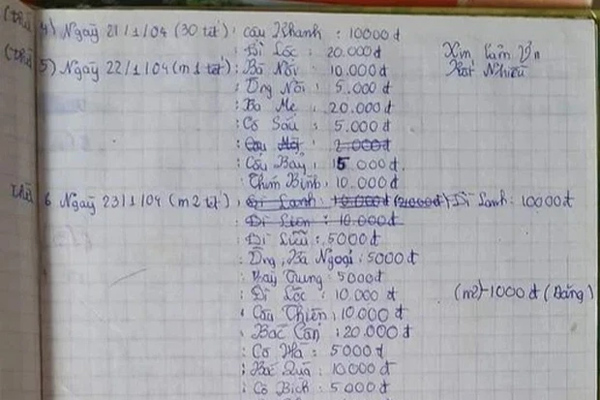 (thứ 4) Ngày 21/1/04 (30 tết) : cậu Khanh : 10000đ
: Dì Lốc : 20.000đ
Xin Cảm Ơn
(Thứ 5) Ngày 22/1/04 (m1 tết) : Bà Nội : 10.000đ
Rất Nhiều
: Ông Nội : 5.000đ
: Ba Mẹ : 20.000đ
: Cô Sáu : 5.000đ
: Cậu Một : 2.000đ
: Cậu Bảy : 15.000đ.
: Thím Bình : 10.000đ
Thứ 6 Ngày 23/1/04 (m2 tết) : Dì Lanh : 10.000đ (2.000đ) Dì Lanh : 10000đ
: Dì Liên : 10.000đ
: Dì Liễu : 5000đ
: Ông, Bà Ngoại : 5000đ
: Bảy Trung : 5000đ
: Dì Lốc : 10.000đ
(m2) - 1000đ (Bảng)
: Cậu Thiện : 10.000đ
: Bác Cần : 20.000đ
: Cô Hà : 5000đ
: Bác Quá : 10.000đ
: Cô Bích : 5.000đ